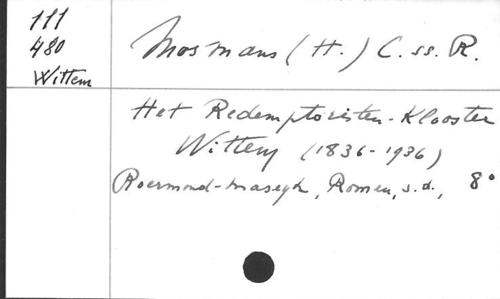 111
480
Wittem
Mosmans (H.) C. ss. R.
Het Redemptoristen-Klooster
Wittem (1836-1936)
Roermond-Maseyk, Romen, s.d., 8°